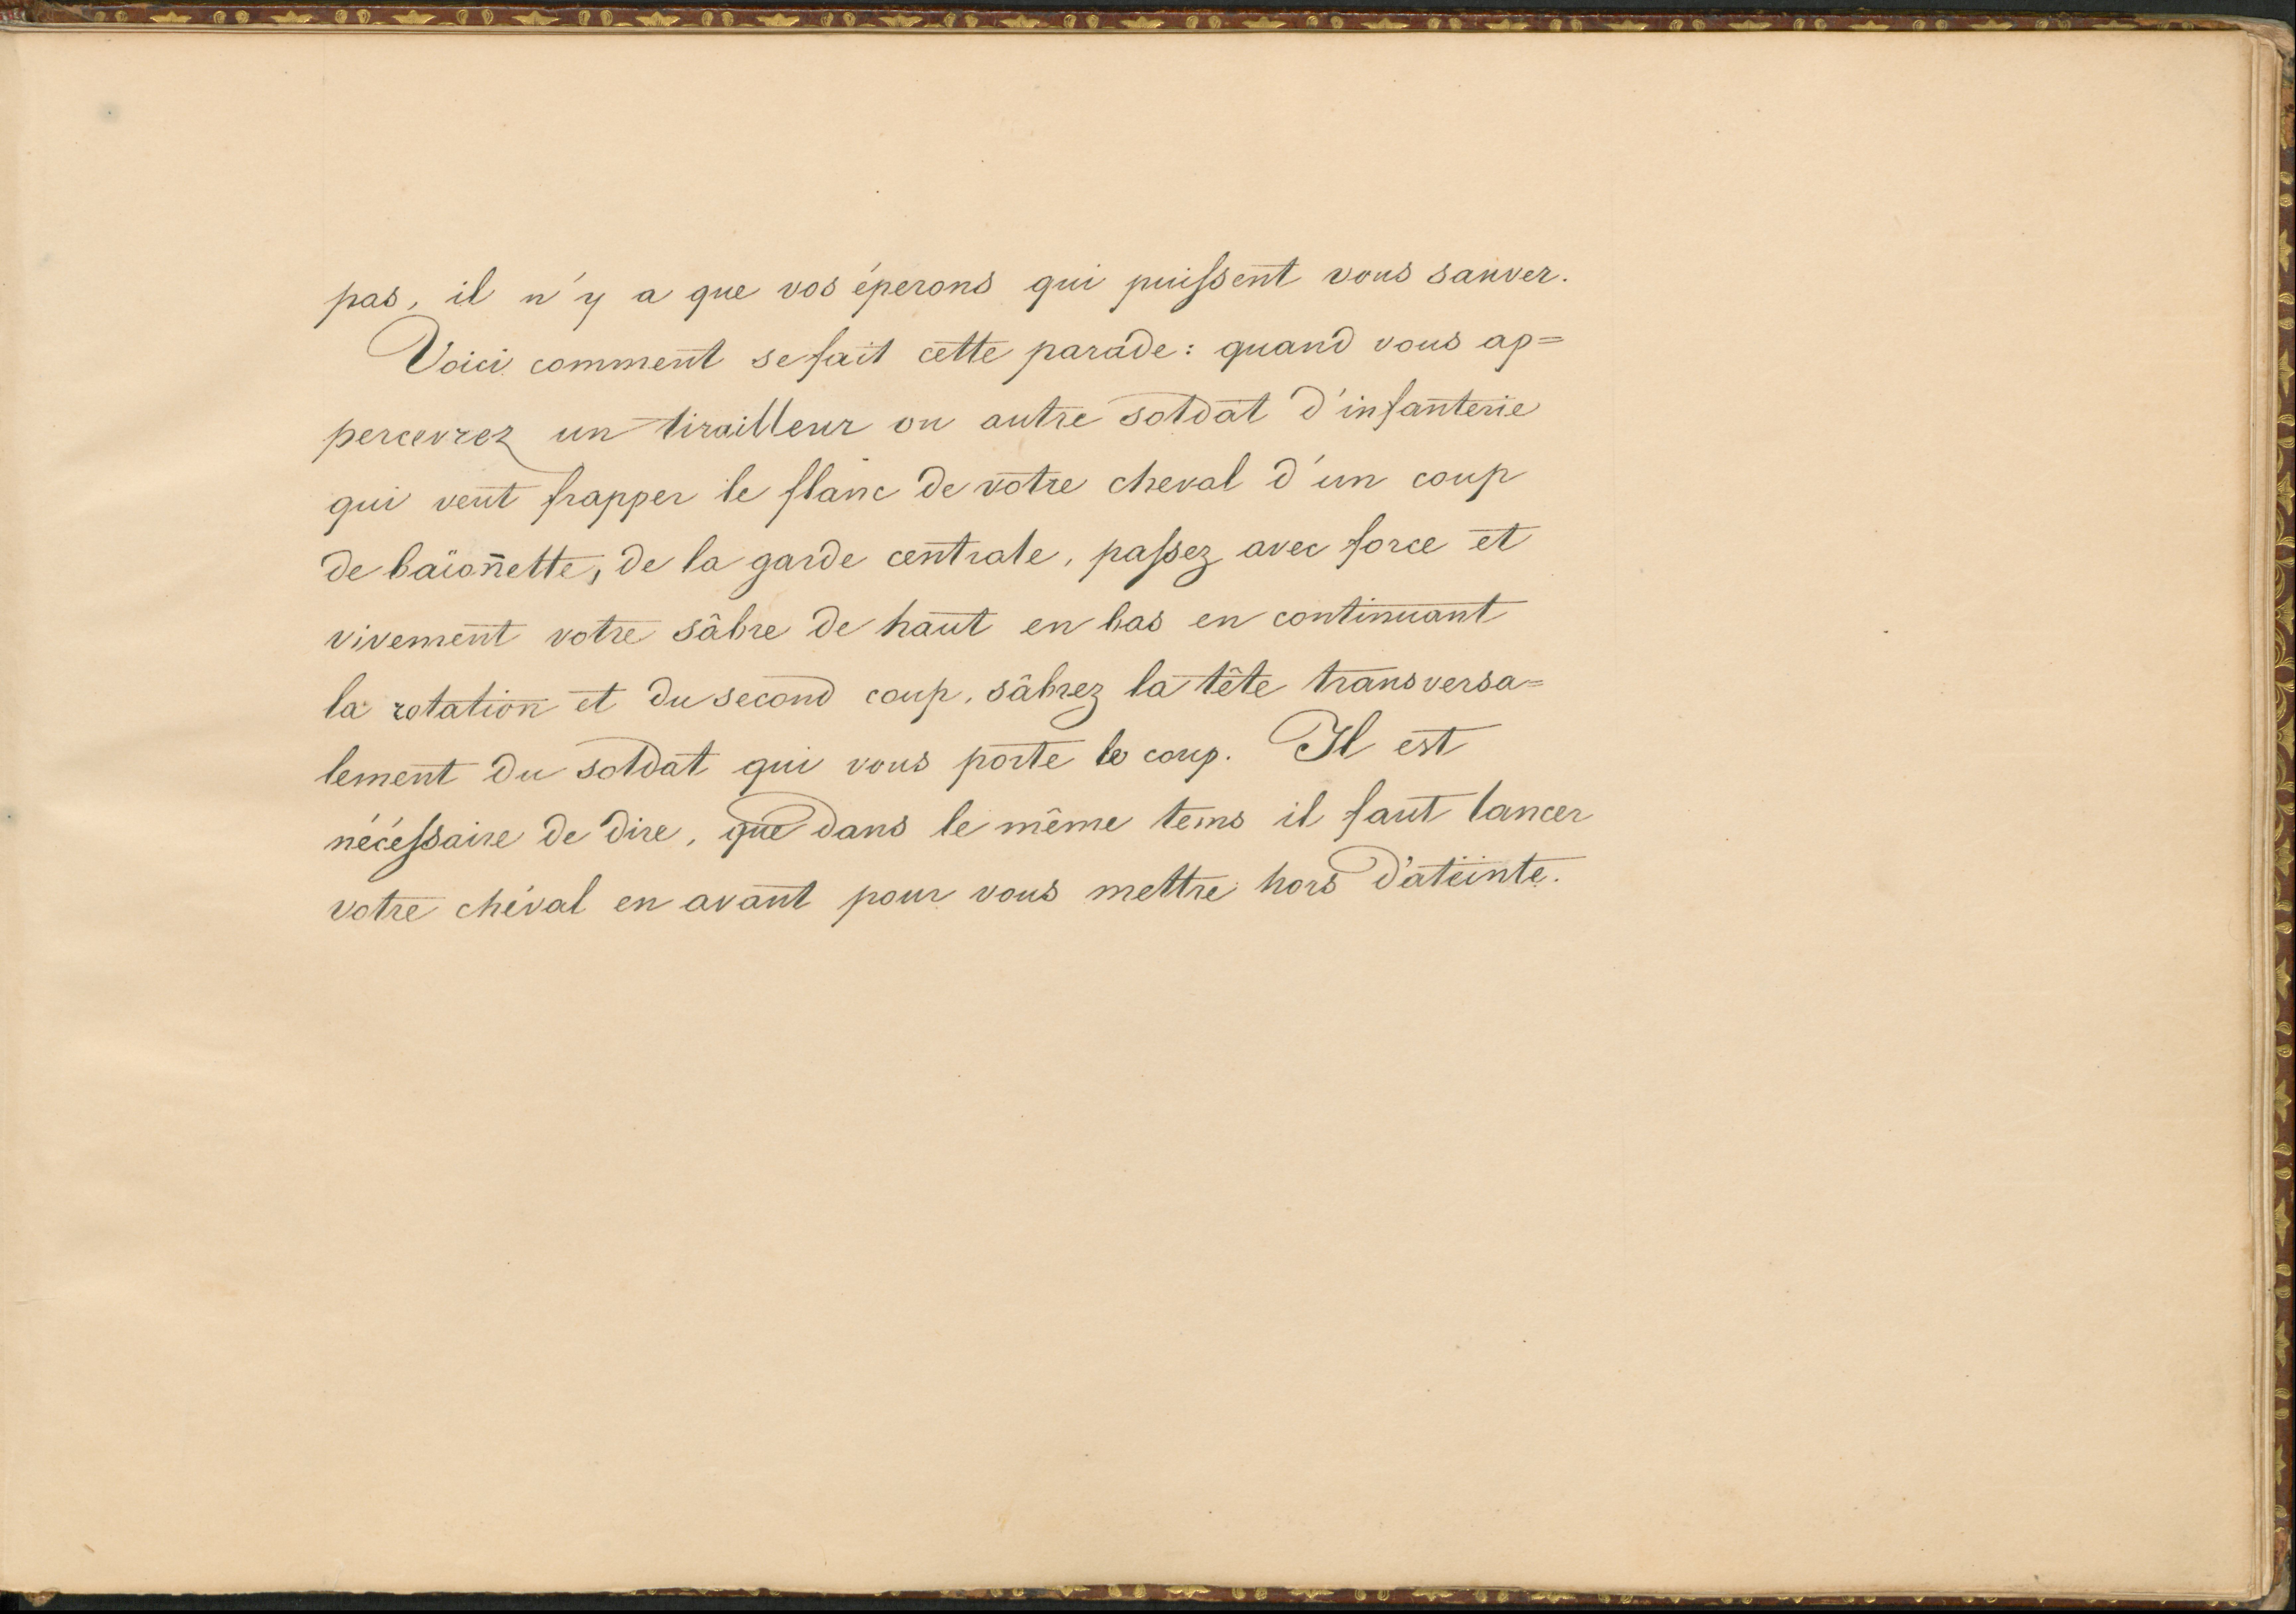 pas, il n'y a que vos éperons qui puissent vous sauver.
Voici comment se fait cette parade: quand vous ap=
percevrez un tirailleur ou autre soldat d'infanterie
qui veut frapper le flanc de votre cheval d'un coup
de baïoñette, de la garde centrale, passez avec force et
vivement votre sâbre de haut en bas en continuant
la rotation et du second coup, sâbrez la tête transversa=
lement du soldat qui vous porte le coup. Il est
nécéssaire de dire, que dans le même tems il faut lancer
votre chéval en avant pour vous mettre hors d'ateinte.